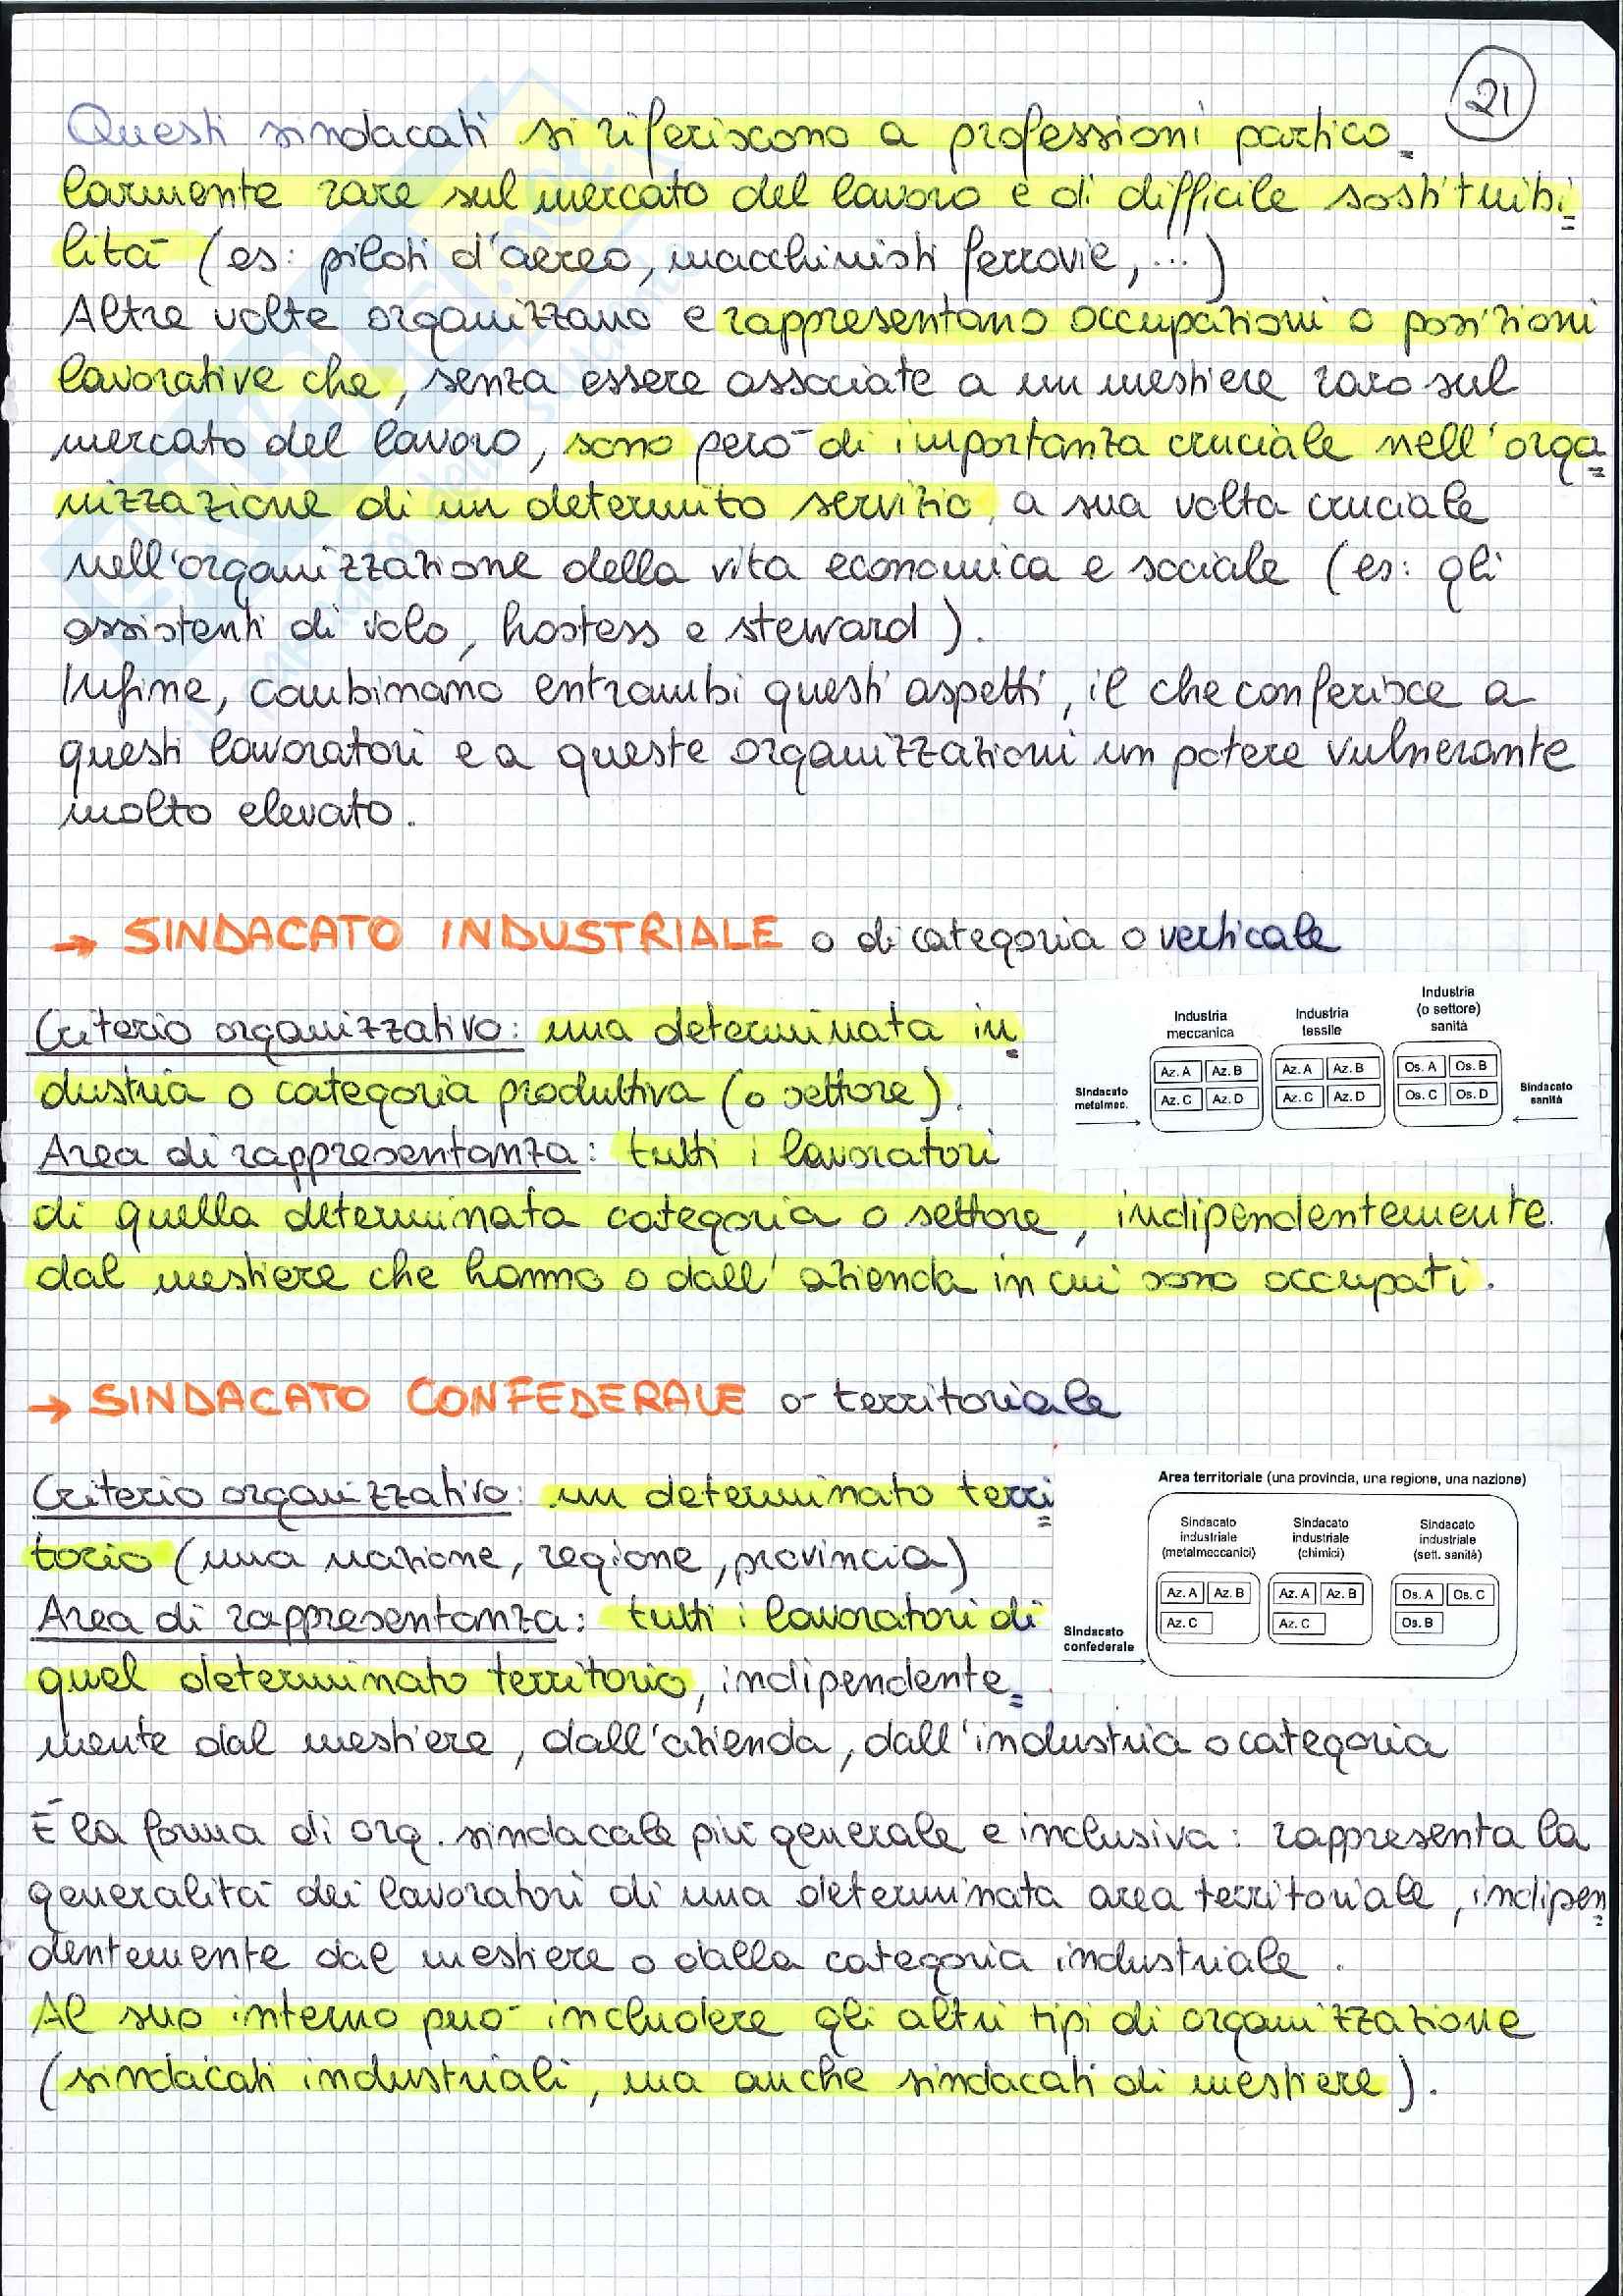 21
Questi sindacati si riferiscono a professioni partico=
larmente rare sul mercato del lavoro e di difficile sostituibi=
lità (es: piloti d'aereo, macchinisti ferrovie, ...)
Altre volte organizzano e rappresentano occupazioni o posizioni
lavorative che, senza essere associate a un mestiere raro sul
mercato del lavoro, sono però di importanza cruciale nell'orga=
nizzazione di un determito servizio, a sua volta cruciale
nell'organizzazione della vita economica e sociale (es: gli
assistenti di volo, hostess e steward).
Infine, combinano entrambi questi aspetti, il che conferisce a
questi lavoratori e a queste organizzazioni un potere vulnerante
molto elevato.
→ SINDACATO INDUSTRIALE o di categoria o verticale
Criterio organizzativo: una determinata in=
dustria o categoria produttiva (o settore).
Area di rappresentanza: tutti i lavoratori
di quella determinata categoria o settore, indipendentemente
dal mestiere che hanno o dall'azienda in cui sono occupati.
Industria
meccanica
Industria
tessile
Industria
(o settore)
sanità
Az. A Az. B
Az. C Az. D
Az. A Az. B
Az. C Az. D
Os. A Os. B
Os. C Os. D
Sindacato
metalmec.
Sindacato
sanità
→ SINDACATO CONFEDERALE o territoriale
Criterio organizzativo: un determinato terri=
torio (una nazione, regione, provincia)
Area di rappresentanza: tutti i lavoratori di
quel determinato territorio, indipendente=
mente dal mestiere, dall'azienda, dall'industria o categoria
Area territoriale (una provincia, una regione, una nazione)
Sindacato
industriale
(metalmeccanici)
Sindacato
industriale
(chimici)
Sindacato
industriale
(sett. sanità)
Az. A Az. B
Az. C
Az. A Az. B
Az. C
Os. A Os. C
Os. B
Sindacato
confederale
È la forma di org. sindacale più generale e inclusiva: rappresenta la
generalità dei lavoratori di una determinata area territoriale, indipen=
dentemente dal mestiere o dalla categoria industriale.
Al suo interno può includere gli altri tipi di organizzazione
(sindacati industriali, ma anche sindacati di mestiere).